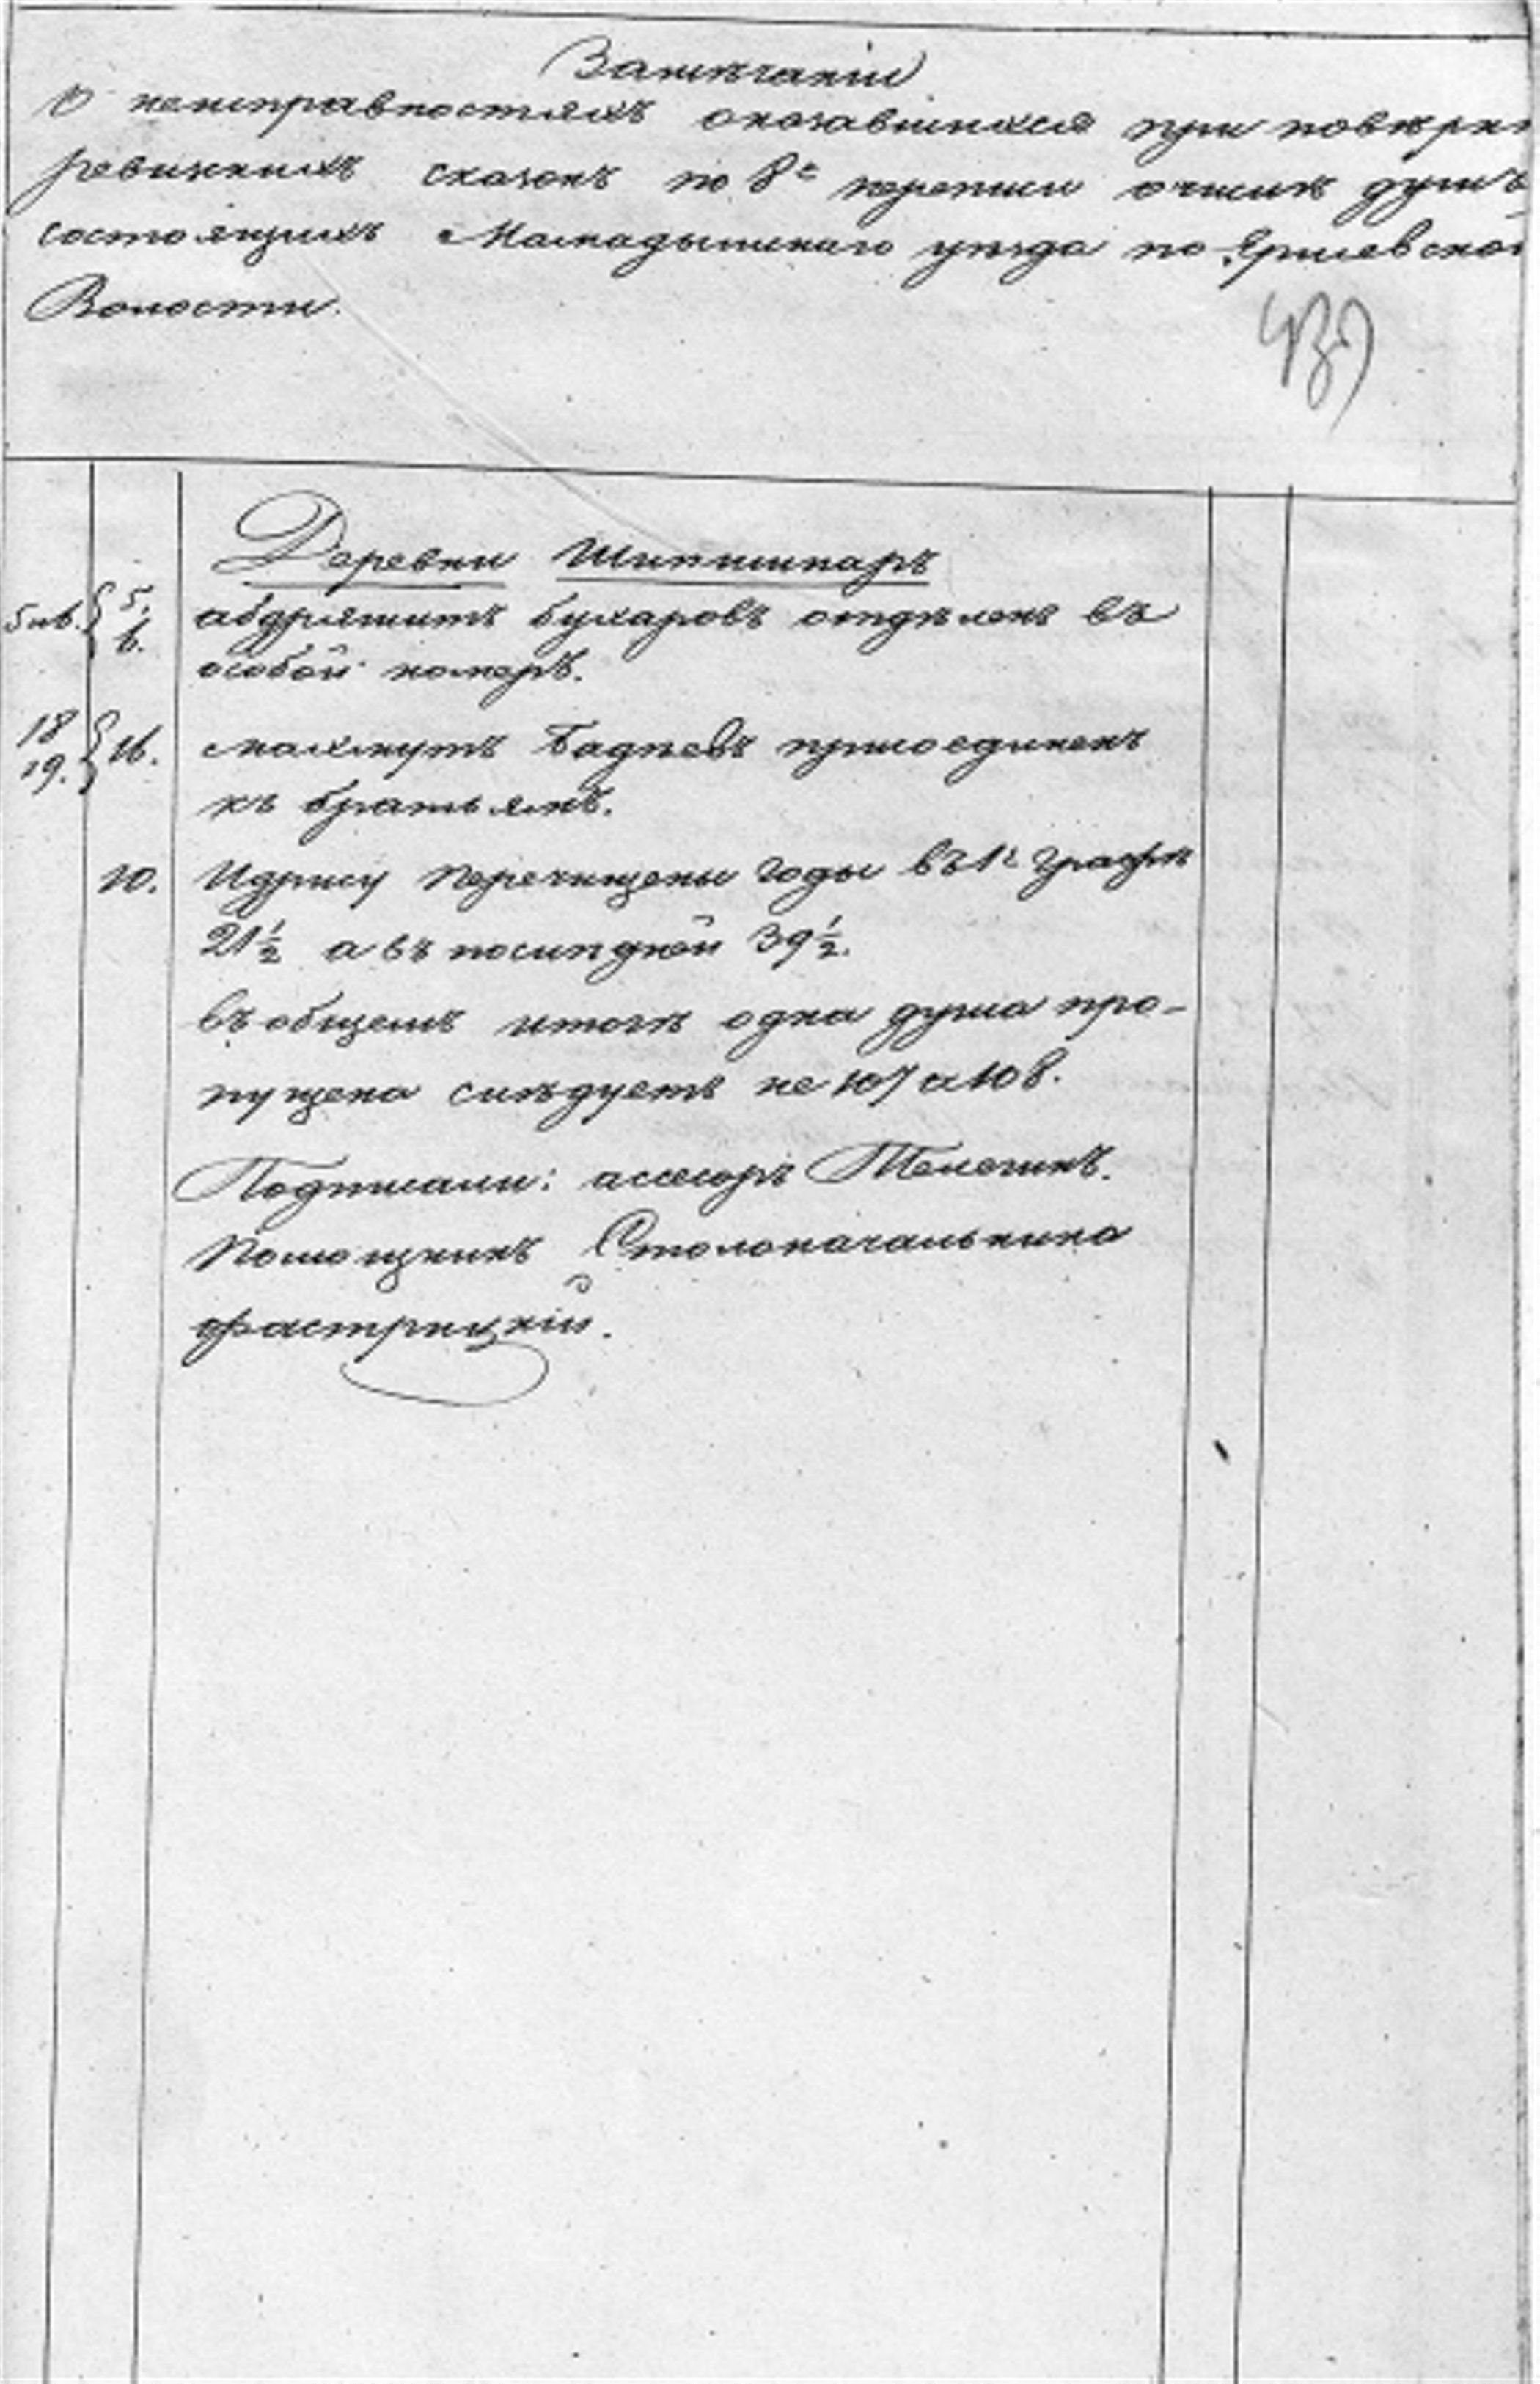 Замѣчаніи
О неисправностяхъ оказавшихся при повѣркѣ
ревижскихъ сказокъ по 8й переписи о числѣ душъ
состоящихъ Мамадышскаго уѣзда по
Волости.
439
Деревни Шипшинаръ
5 и 6. 5. 6. абдряшитъ бухаровъ отдѣленъ въ
особой номеръ.
18 19. 16. махмутъ Бадневъ присоединенъ
къ братьямъ.
20. Идрису перечищены годы въ 1й графѣ
21½ а въ послѣдней 39½.
въ общемъ итогѣ одна душа про-
пущена слѣдуетъ не 107 а 108.
Подписали: ассесоръ Телегинъ.
Помощникъ Столоначальника